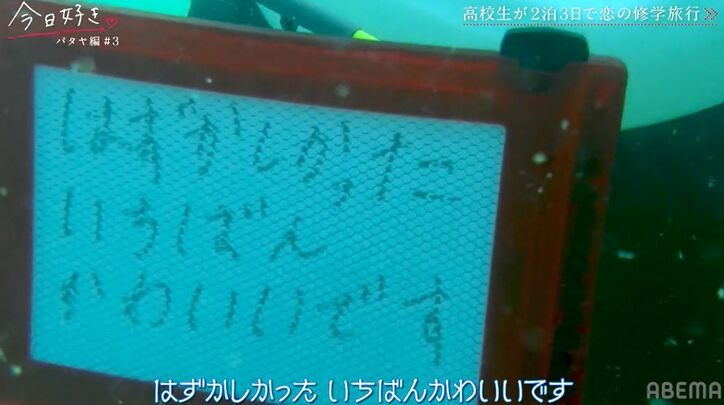 今日好き
パタヤ編 #3
高校生が2泊3日で恋の修学旅行
はずかしかった
いちばん
かわいいです
はずかしかった いちばんかわいいです
ABEMA